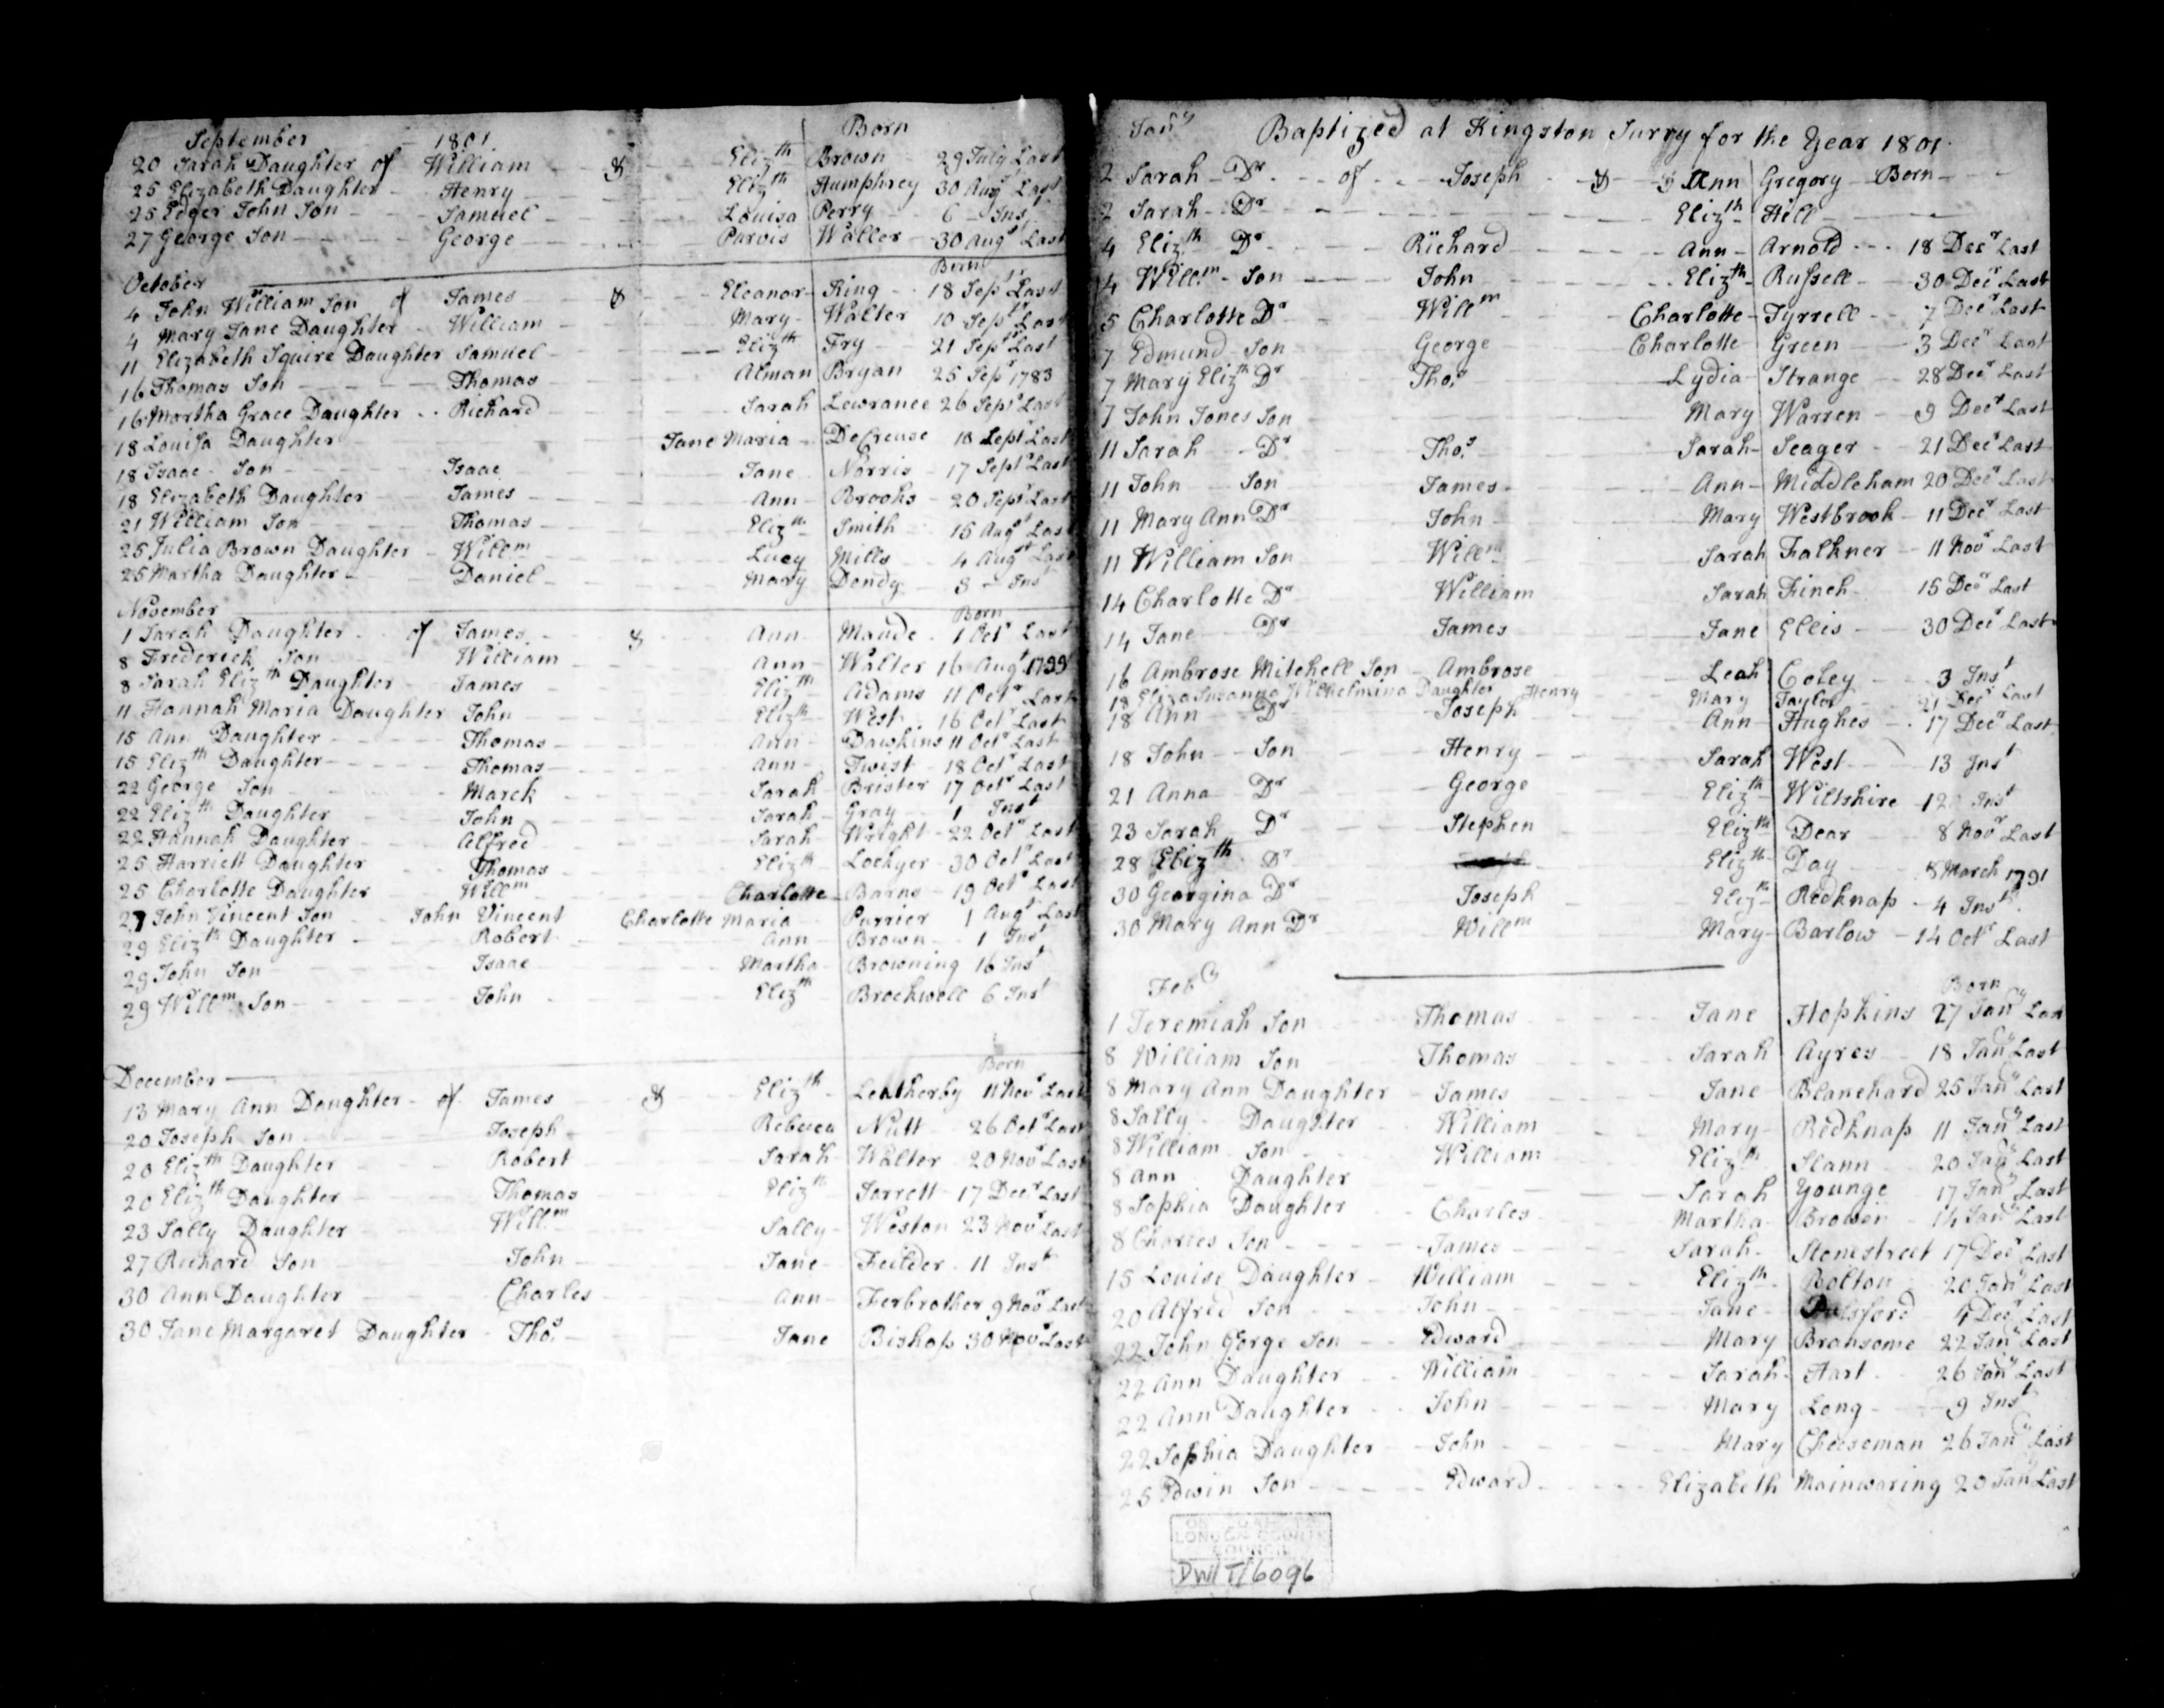 September 1801 Born
20 Sarah Daughter of William & Elizth Brown 29 July Last
25 Elizabeth Daughter Henry Elizth Humphrey 30 Augst Last
25 Edger John Son Samuel Louisa Perry 6 Inst
27 George Son George Parvis Waller 30 Augst Last
October Born
4 John William Son of James & Eleanor King 18 Sepr Last
4 Mary Jane Daughter William Mary Walter 10 Sepr Last
11 Elizabeth Squire Daughter Samuel Elizth Fry 21 Sepr Last
16 Thomas Son Thomas Alman Bryan 25 Sepr 1783
16 Martha Grace Daughter Richard Sarah Lewrance 26 Sepr Last
18 Louisa Daughter Jane Maria DeCreuse 18 Septr Last
18 Isaac Son Isaac Jane Norris 17 Septr Last
18 Elizabeth Daughter James Ann Brooks 20 Sepr Last
21 William Son Thomas Elizth Smith 15 Augt Last
25 Julia Brown Daughter Willm Lucy Mills 4 Augst Last
25 Martha Daughter Daniel Mary Dendy 3 Inst
November Born
1 Sarah Daughter of James & Ann Maude 1 Octr Last
8 Frederick Son William Ann Walter 16 Augt 1799
8 Sarah Elizth Daughter James Elizth Adams 11 Octr Last
11 Hannah Maria Daughter John Elizth West 16 Octr Last
15 Ann Daughter Thomas Ann Dawkins 11 Octr Last
15 Elizth Daughter Thomas Ann Twist 18 Octr Last
22 George Son Marck Sarah Brister 17 Octr Last
22 Elizth Daughter John Sarah Gray 1 Inst
22 Hannah Daughter Alfred Sarah Wright 22 Octr Last
25 Harriett Daughter Thomas Elizth Lockyer 30 Octr Last
25 Charlotte Daughter Willm Charlotte Barns 19 Octr Last
27 John Vincent Son John Vincent Charlotte Maria Purrier 1 Augt Last
29 Elizth Daughter Robert Ann Brown 1 Inst
29 John Son Isaac Martha Browning 16 Inst
29 Willm Son John Elizth Brockwell 6 Inst
December Born
13 Mary Ann Daughter of James & Elizth Leatherby 11 Novr Last
20 Joseph Son Joseph Rebecca Nutt 26 Octr Last
20 Elizth Daughter Robert Sarah Walter 20 Novr Last
20 Elizth Daughter Thomas Elizth Jorrett 17 Decr Last
23 Sally Daughter Willm Sally Weston 23 Novr Last
27 Richard Son John Jane Feilder 11 Inst
30 Ann Daughter Charles Ann Ferbrother 9 Novr Last
30 Jane Margaret Daughter Thos Jane Bishop 30 Novr Last
Jany Baptized at Kingston Surry for the Year 1801
2 Sarah Dr of Joseph & Ann Gregory Born
2 Sarah Dr Elizth Hill
4 Elizth Dr Richard Ann Arnold 18 Decr Last
4 Willm Son John Elizth Russell 30 Decr Last
5 Charlotte Dr Willm Charlotte Tyrrell 7 Decr Last
7 Edmund Son George Charlotte Green 3 Decr Last
7 Mary Elizth Dr Thos Lydia Strange 28 Decr Last
7 John Jones Son Mary Warren 9 Decr Last
11 Sarah Dr Thos Sarah Seager 21 Decr Last
11 John Son James Ann Middleham 20 Decr Last
11 Mary Ann Dr John Mary Westbrook 11 Decr Last
11 William Son Willm Sarah Falkner 11 Novr Last
14 Charlotte Dr William Sarah Finch 15 Decr Last
14 Jane Dr James Jane Ellis 30 Decr Last
16 Ambrose Mitchell Son Ambrose Leah Coley 3 Inst
18 Eliza Susanna Wilhelmina Daughter Henry Mary Taylor 21 Decr Last
18 Ann Dr Joseph Ann Hughes 17 Decr Last
18 John Son Henry Sarah West 13 Inst
21 Anna Dr George Elizth Wiltshire Inst
23 Sarah Dr Stephen Elizth Dear 8 Novr Last
28 Elizth Dr Elizth Day 8 March 1791
30 Georgina Dr Joseph Elizth Redknap 4 Inst
30 Mary Ann Dr Willm Mary Barlow 14 Octr Last
Feby Born
1 Jeremiah Son Thomas Jane Hopkins 27 Jany Last
8 William Son Thomas Sarah Ayres 18 Jany Last
8 Mary Ann Daughter James Jane Blanchard 25 Jany Last
8 Sally Daughter William Mary Redknap 11 Jany Last
8 William Son William Elizth Slann 20 Jany Last
8 Ann Daughter Sarah Younge 17 Jany Last
8 Sophia Daughter Charles Martha Browen 14 Jany Last
8 Charles Son James Sarah Stonestreet 17 Decr Last
15 Louise Daughter William Elizth Bolton 20 Jany Last
20 Alfred Son John Jane Decr Last
22 John Gorge Son Edward Mary Bransome 22 Jany Last
22 Ann Daughter William Sarah Hart 26 Jany Last
22 Ann Daughter John Mary Long 9 Inst
22 Sophia Daughter John Mary Cheeseman 26 Jany Last
25 Edwin Son Edward Elizabeth Mainwaring 20 Jany Last
LONDON COUNTY
COUNCIL
DW/T/6096